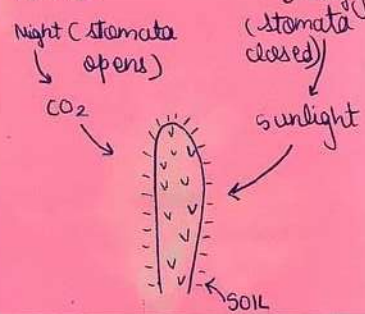 Night (stomata
opens)
CO2
(stomata
closed)
sunlight
SOIL